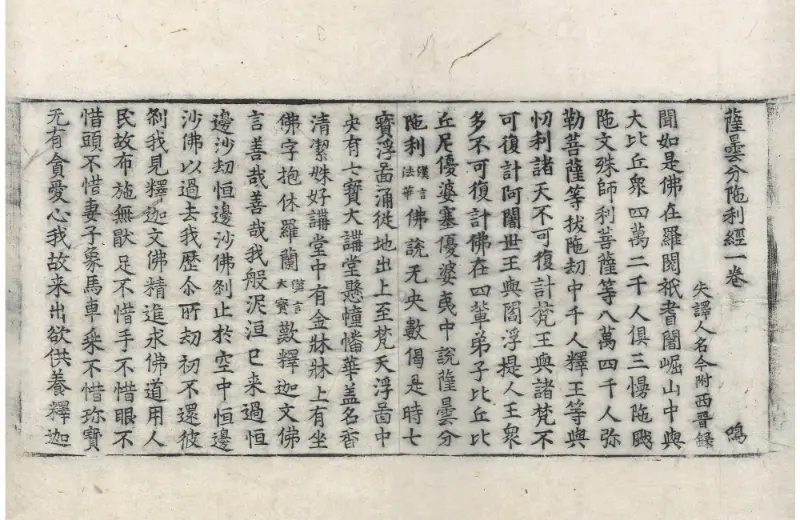 薩曇分陁利經一卷
失譯人名今附西晉録 鳴
聞如是佛在羅閱祇耆闍崛山中與
大比丘衆四萬二千人俱三慢陁颰
陁文殊師利菩薩等八萬四千人弥
勒菩薩等拔陁劫中千人釋王等與
忉利諸天不可復計梵王與諸梵不
可復計阿闍世王與閻浮提人王衆
多不可復計佛在四輩弟子比丘比
丘尼優婆塞優婆夷中說薩曇分
陁利漢言法華佛說无央數偈是時七
寶浮啚涌從地出上至梵天浮啚中
央有七寶大講堂懸幢幡華盖名香
清潔姝好講堂中有金牀牀上有坐
佛字抱休羅蘭漢言大寶歎釋迦文佛
言善哉善哉我般泥洹已来過恒
邊沙劫恒邊沙佛刹止於空中恒邊
沙佛以過去我歷尒所劫初不還彼
刹我見釋迦文佛精進求佛道用人
民故布施無猒足不惜手不惜眼不
惜頭不惜妻子象馬車乘不惜珎寶
无有貪愛心我故来出欲供養釋迦